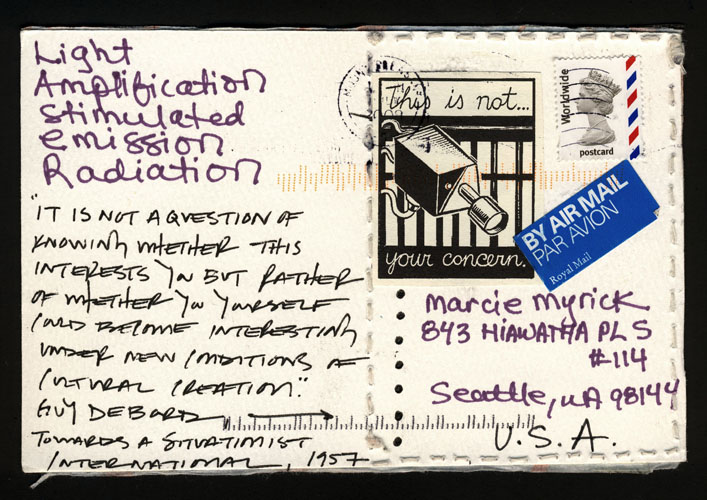 Light
Amplification
Stimulated
emission
Radiation
"IT IS NOT A QUESTION OF
KNOWING WHETHER THIS
INTERESTS YOU BUT RATHER
OF WHETHER YOU YOURSELF
COULD BECOME INTERESTING
UNDER NEW CONDITIONS OF
CULTURAL CREATION."
GUY DEBORD
TOWARDS A SITUATIONIST
INTERNATIONAL, 1957
This is not...
your concern.
Worldwide
postcard
BY AIR MAIL
PAR AVION
Royal Mail
Marcie Myrick
843 HIAWATHA PL S
#114
Seattle, WA 98144
U.S.A.